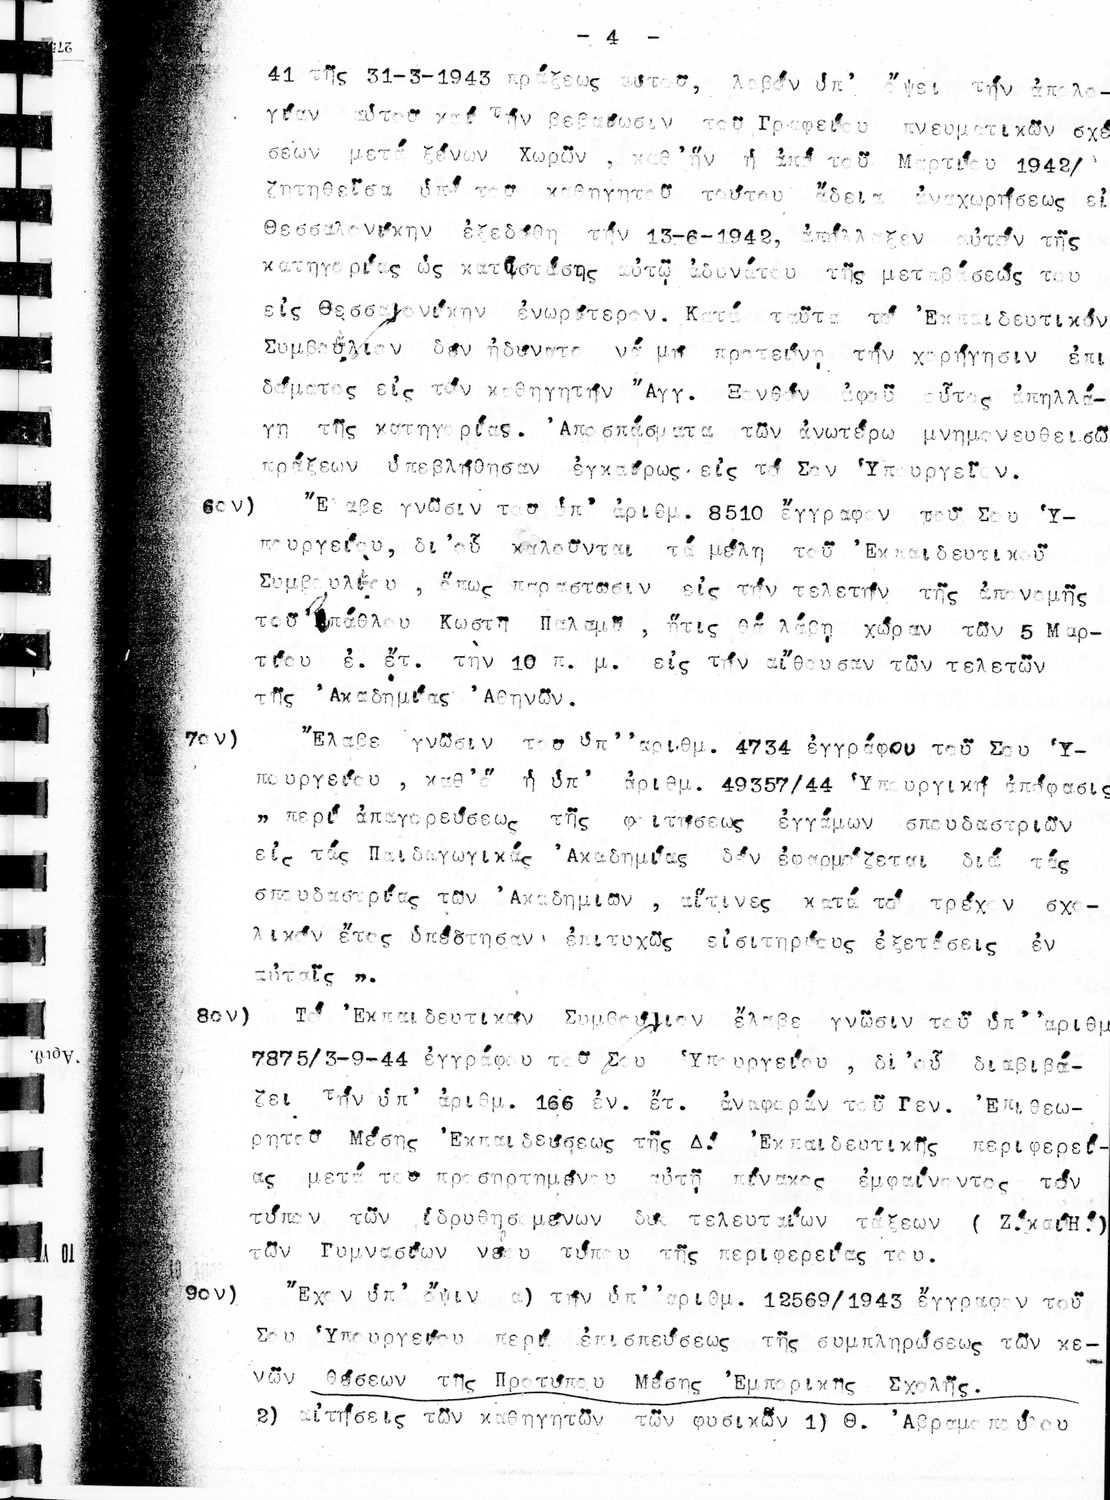 - 4 -
41 τῆς 31-3-1943 πράξεως αὐτοῦ, λαβόν ὑπ' ὄψει τήν ἀπολο-
γίαν αὐτοῦ καί τήν βεβαίωσιν τοῦ Γραφείου πνευματικῶν σχέ
σεων μετά ξένων Χωρῶν , καθ'ἥν ἡ ἀπό τοῦ Μαρτίου 1942/
ζητηθεῖσα ὑπό τοῦ καθηγητοῦ τούτου ἄδεια ἀναχωρήσεως εἰ
Θεσσαλονίκην ἐξεδόθη τήν 13-6-1942, ἀπήλλαξεν αὐτόν τῆς
κατηγορίας ὡς καταστάσης αὐτῷ ἀδυνάτου τῆς μεταβάσεώς του
εἰς Θεσσαλονίκην ἐνωρίτερον. Κατά ταῦτα τό 'Εκπαιδευτικόν
Συμβούλιον δέν ἠδύνατο νά μή προτείνῃ τήν χορήγησιν ἐπι
δόματος εἰς τόν καθηγητήν "Αγγ. Ξανθόν ἀφοῦ οὗτος ἀπηλλά-
γη τῆς κατηγορίας. 'Αποσπάσματα τῶν ἀνωτέρω μνημονευθεισῶ
πράξεων ὑπεβλήθησαν ἐγκαίρως εἰς τό Σον 'Υπουργεῖον.
6ον) "Ελαβε γνῶσιν τοῦ ὑπ' ἀριθμ. 8510 ἔγγραφον τοῦ Σου 'Υ-
πουργείου, δι'οὗ καλοῦνται τά μέλη τοῦ 'Εκπαιδευτικοῦ
Συμβουλίου , ὅπως παραστῶσιν εἰς τήν τελετήν τῆς ἀπονομῆς
τοῦ ἐπάθλου Κωστῆ Παλαμᾶ , ἥτις θά λάβῃ χώραν τῶν 5 Μαρ-
τίου ἐ. ἔτ. τήν 10 π. μ. εἰς τήν αἴθουσαν τῶν τελετῶν
τῆς 'Ακαδημίας 'Αθηνῶν.
7ον) "Ελαβε γνῶσιν τοῦ ὑπ''αριθμ. 4734 ἐγγράφου τοῦ Σου 'Υ-
πουργείου , καθ'ὅ ἡ ὑπ' ἀριθμ. 49357/44 'Υπουργική ἀπόφασις
" περί ἀπαγορεύσεως τῆς φοιτήσεως ἐγγάμων σπουδαστριῶν
εἰς τάς Παιδαγωγικάς 'Ακαδημίας δέν ἐφαρμόζεται διά τάς
σπουδαστρίας τῶν 'Ακαδημιῶν , αἵτινες κατά τό τρέχον σχο-
λικόν ἔτος ὑπέστησαν ἐπιτυχῶς εἰσιτηρίους ἐξετάσεις ἐν
αὐταῖς ".
8ον) Τό 'Εκπαιδευτικόν Συμβούλιον ἔλαβε γνῶσιν τοῦ ὑπ''αριθμ
7875/3-9-44 ἐγγράφου τοῦ Σου 'Υπουργείου , δι'οὗ διαβιβά-
ζει τήν ὑπ' ἀριθμ. 166 ἐν. ἔτ. ἀναφοράν τοῦ Γεν. 'Επιθεω-
ρητοῦ Μέσης 'Εκπαιδεύσεως τῆς Δ! 'Εκπαιδευτικῆς περιφερεί-
ας μετά τοῦ προσηρτημένου αὐτῇ πίνακος ἐμφαίνοντος τόν
τύπον τῶν ἱδρυθησομένων δύο τελευταίων τάξεων ( Ζ!καίΗ!)
τῶν Γυμνασίων νέου τύπου τῆς περιφερείας του.
9ον) "Εχον ὑπ' ὄψιν α) τήν ὑπ''αριθμ. 12569/1943 ἔγγραφον τοῦ
Σου 'Υπουργείου περί ἐπισπεύσεως τῆς συμπληρώσεως τῶν κε-
νῶν θέσεων τῆς Προτύπου Μέσης 'Εμπορικῆς Σχολῆς.
2) αἰτήσεις τῶν καθηγητῶν τῶν φυσικῶν 1) Θ. 'Αβραμοπούλου